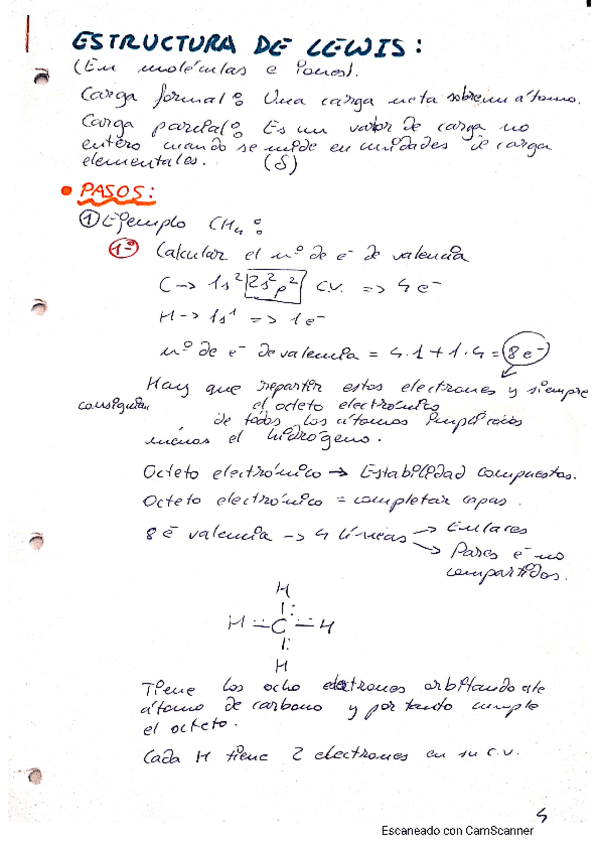 ESTRUCTURA DE LEWIS:
(En moléculas e iones).
Carga formal: Una carga neta sobre un átomo.
Carga parcial: Es un valor de carga no
entero cuando se mide en unidades de carga
elementales. (δ)
• PASOS:
① Ejemplo CH4:
1º Calcular el nº de e- de valencia
C -> 1s² 2s²p² C.V. => 4e-
H -> 1s¹ => 1e-
nº de e- de valencia = 4·1+1·4 = 8e-
Hay que repartir estos electrones y siempre
consigan el octeto electrónico
de todos los átomos implicados
menos el hidrógeno.
Octeto electrónico -> Estabilidad compuestos.
Octeto electrónico = completar capas.
8 e- valencia -> 4 líneas -> Enlaces
-> Pares e- no
compartidos.
H
H C H
H
Tiene los ocho electrones orbitando ale
átomo de carbono y por tanto cumple
el octeto.
Cada H tiene 2 electrones en su C.V.
4
Escaneado con CamScanner